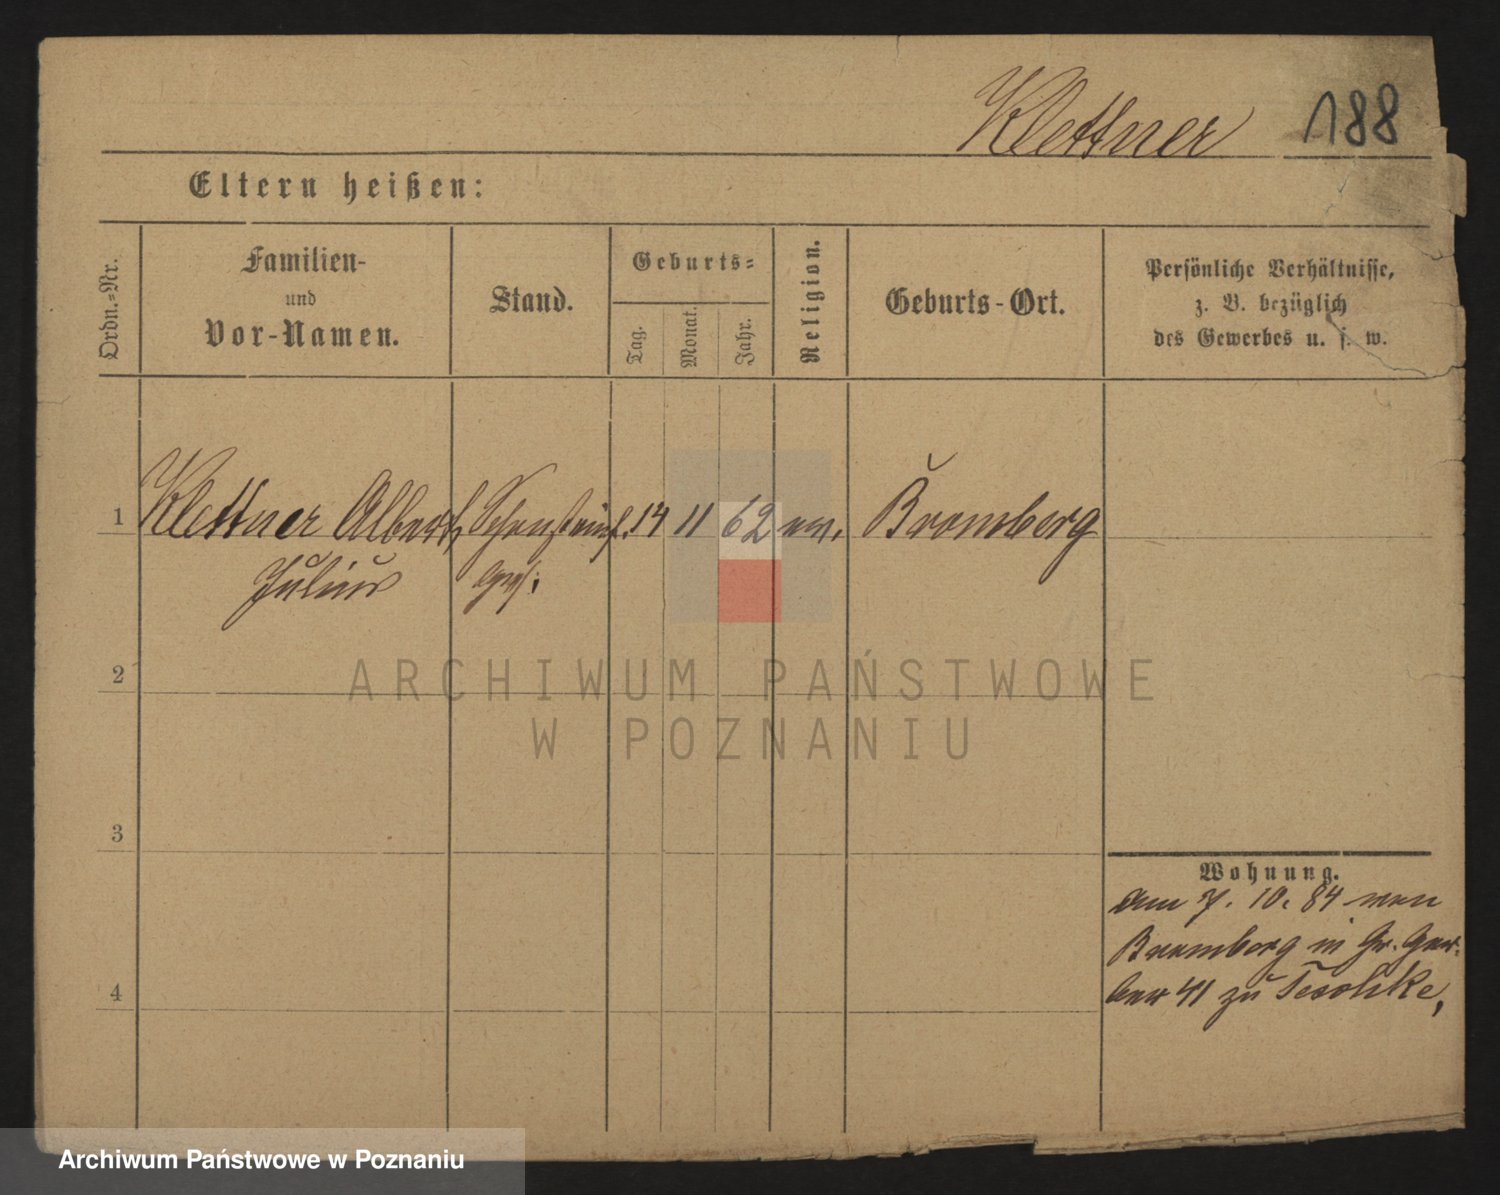 Klettner
188
Eltern heißen:
Ordn.-Nr.
Familien-
und
Vor-Namen.
Stand.
Geburts-
Tag.
Monat.
Jahr.
Religion.
Geburts-Ort.
Persönliche Verhältnisse,
z. B. bezüglich
des Gewerbes u. s. w.
1 Klettner Albert Schornsteinf. 14 11 62 ev. Bromberg
Julius Ges.
2
3
4
Wohnung.
Am 7. 10. 84 von
Bromberg in Gr. Ger-
ber 41 zu
ARCHIWUM PAŃSTWOWE
W POZNANIU
Archiwum Państwowe w Poznaniu